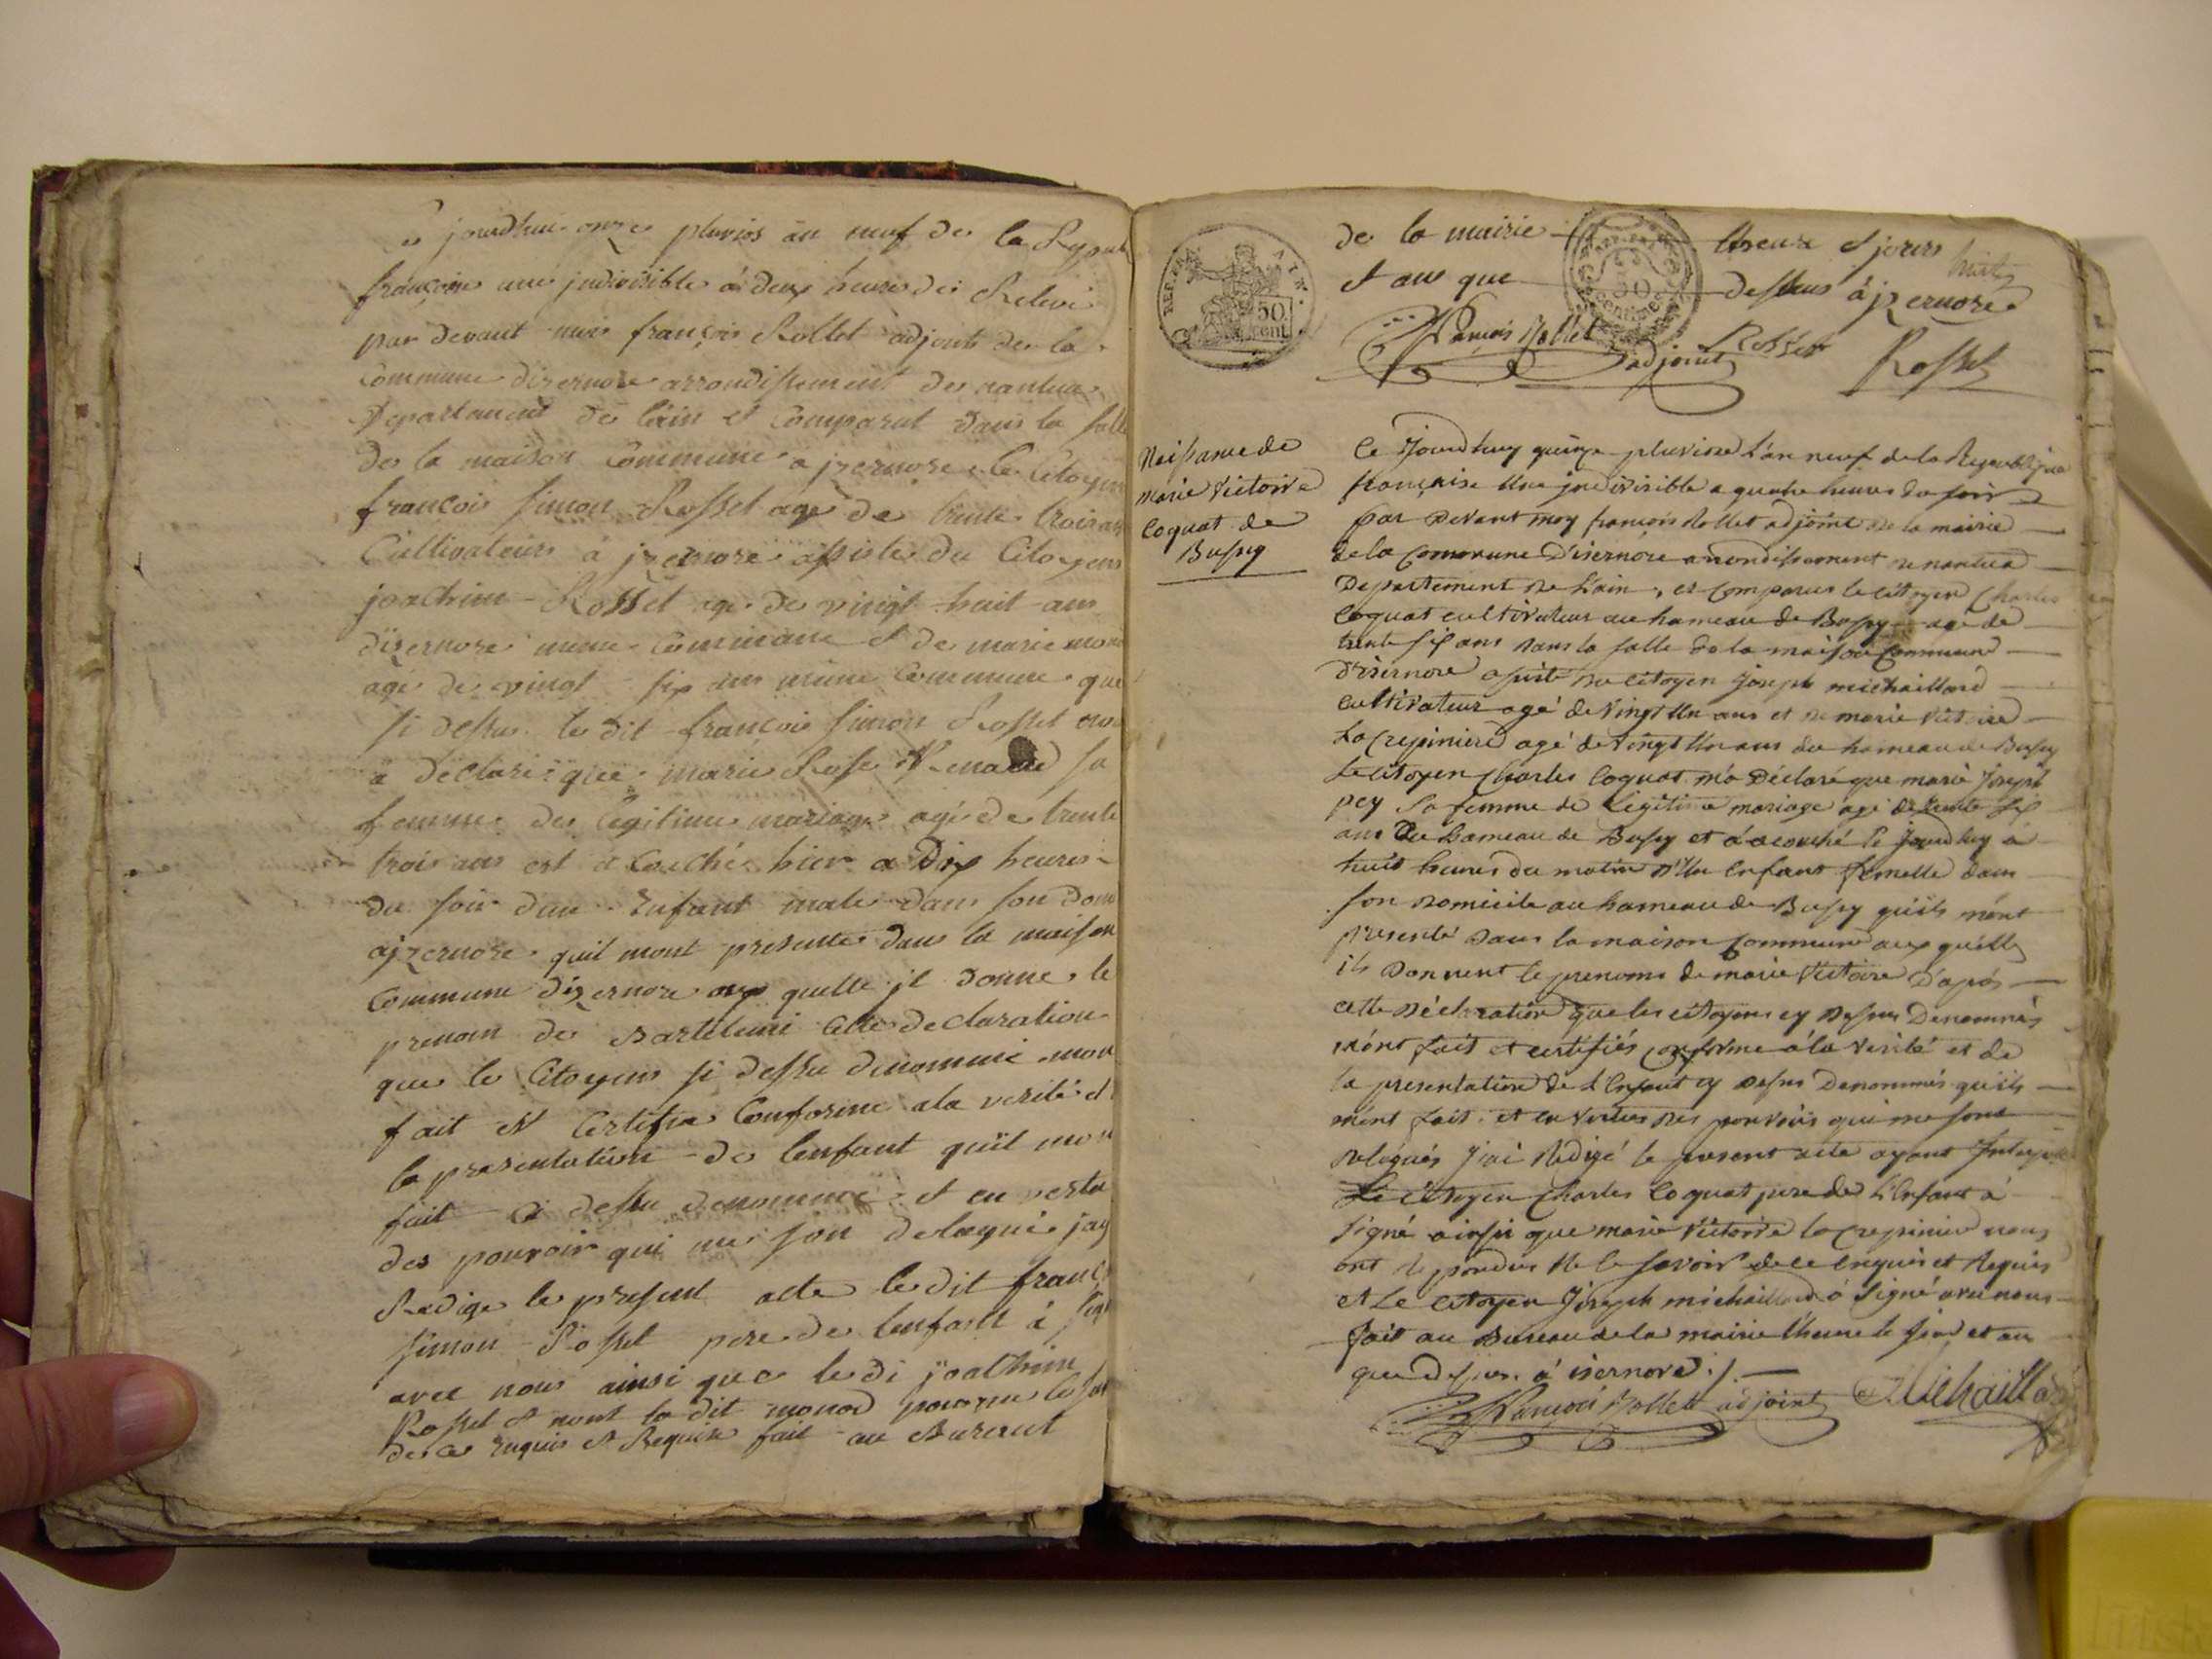 jourdhui onze pluvios an neuf de la Repub
françoise une jndivisible a deux heures de Relevé
par devant moi françois Rollet adjoint de la
Commune dizernore arrondissement de nantua
Departement de lain et Comparut dans la salle
de la maison Commune a jzernore le Citoyen
françois simon Rosset agé de trente trois ans
Cultivateur a jzernore assisté du Citoyen
joachim Rosset age de vingt huit ans
dizernore meme Commune et de marie mono
age de vingt six ans meme Commune que
si dessus le dit françois simon Rosset
a declaré que marie Rose sa
femme de legitime mariage agé de trente
trois ans est accouché hier a Dix heures
du soir dun Enfant male dans son Dom
ajzernore quil mont presente dans la maison
Commune dizernore aux quelle jl donne le
prenom de Bartelemi Cette declaration
que le Citoyens si dessu denommé mon
fait et Certifie Conforme ala verité et
la presentation de lenfant quil mon
fait Ci dessu denommé et en vertu
des pouvoir qui me son delegué jay
Redige le present acte le dit franç
simon Rosset pere de lenfant a sign
avec nous ainsi que le di joachim
Rosset et nont la dit monod pour ne le
de ce Enquis et Requise fait au Bureaut
de la mairie Lheure et jours
et ans que dessus a jzernore
huit
REP. FRA.
50 cent
30 centimes
françois Rollet adjoint Rosset Rosset
Naissance de
marie Victoire
Coquat de
Bussy
Ce Jourdhuy quinze pluviose L'an neuf de la Republique
française Une jndivisible a quatre heures du soir
par Devant moy françois Rollet adjoint de la mairie
de la Commune D'isernore arrondissement de nantua
Departement de L'ain, et Comparus le citoyen Charles
Coquat cultivateur au hameau de Bussy agé de
trente six ans dans la salle de la maison Commune
D'isernore assisté du citoyen Joseph michaillard
Cultivateur agé de Vingt Un ans et de marie Victoire
La Crepiniere agé de Vingt Un ans du hameau de Bussy
Le citoyen Charles Coquat m'a Déclaré que marie Joseph
pey sa femme de Légitime mariage agé de trente six
ans Du hameau de Bussy et a acouché le Jourdhuy a
huit heures du matin d'Un Enfant femelle dans
son Domicile au hameau de Bussy qu'ils m'ont
presenté Dans la maison Commune aux quelle
ils Donnent le prenoms de marie Victoire D'après
cette Déclaration que les citoyens cy Dessus Dénommés
m'ont fait et certifiés conforme a la Verité et de
la presentation de L'Enfant cy Dessus Denommés qu'ils
m'ont fait. et en Vertus des pouvoirs qui me sont
Délégués J'ai Rédigé le present acte ayant
Le Citoyen Charles Coquat pere de L'Enfant à
Signé ainsi que marie Victoire la Crepiniere nous
ont Repondus Ne le savoir de ce Enquis et Requis
et Le Citoyen Joseph michaillard a Signé avec nous
fait au Bureau de la mairie L'heure le jour et an
que Dessus à isernore ./.
françois Rollet adjoint Michaillard